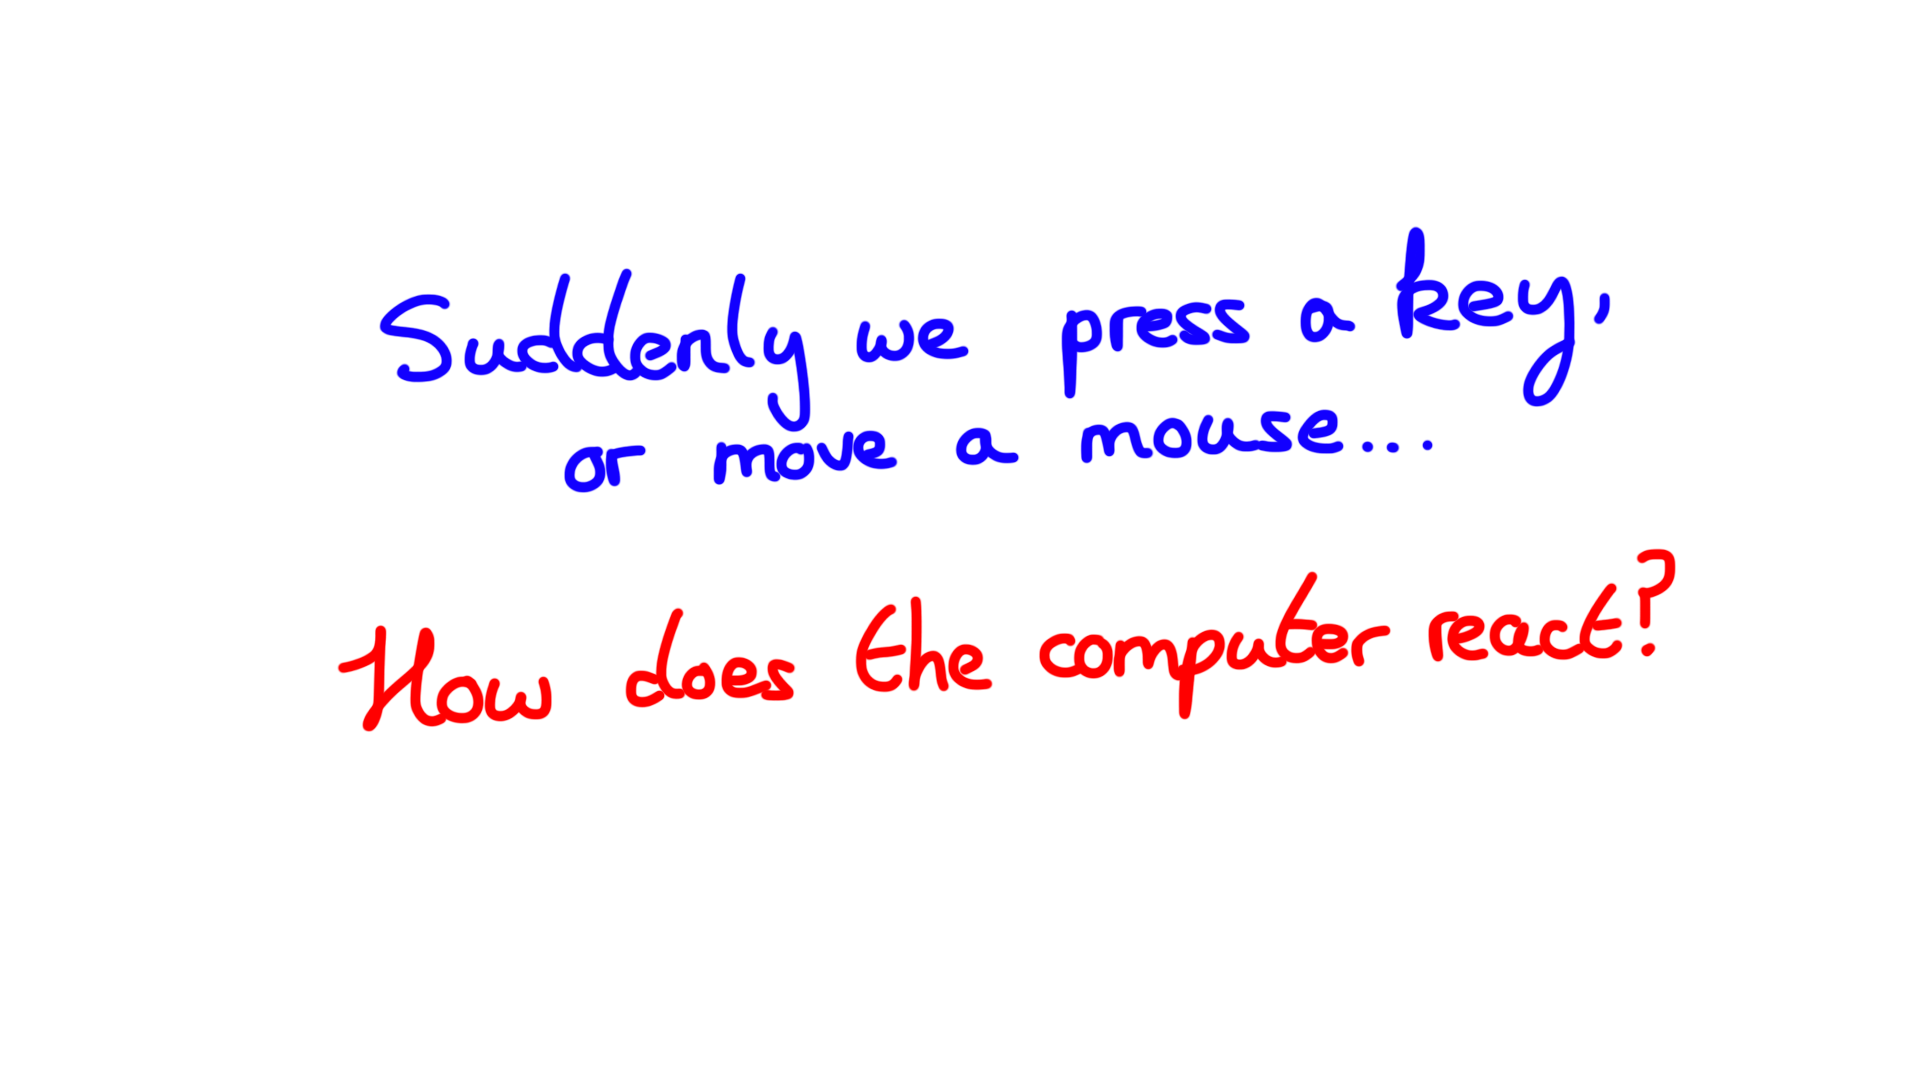 Suddenly we press a key,
or move a mouse...
How does the computer react?